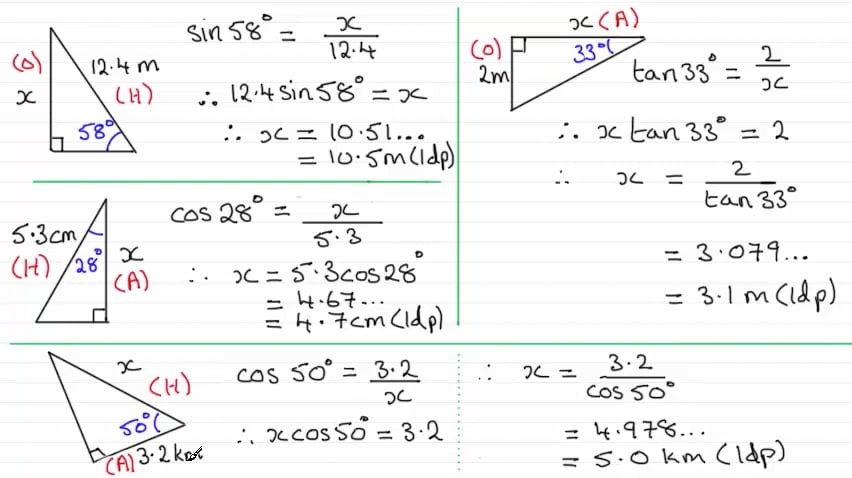 (O)
x
12.4 m
(H)
58°
sin 58° = x/12.4
∴ 12.4 sin 58° = x
∴ x = 10.51...
= 10.5 m (1dp)
x (A)
(O)
2m
33°
tan 33° = 2/x
∴ x tan 33° = 2
∴ x = 2/tan 33°
= 3.079...
= 3.1 m (1dp)
5.3 cm
(H)
28°
x
(A)
cos 28° = x/5.3
∴ x = 5.3 cos 28°
= 4.67...
= 4.7 cm (1dp)
x
(H)
50°
(A) 3.2 km
cos 50° = 3.2/x
∴ x cos 50° = 3.2
∴ x = 3.2/cos 50°
= 4.978...
= 5.0 km (1dp)